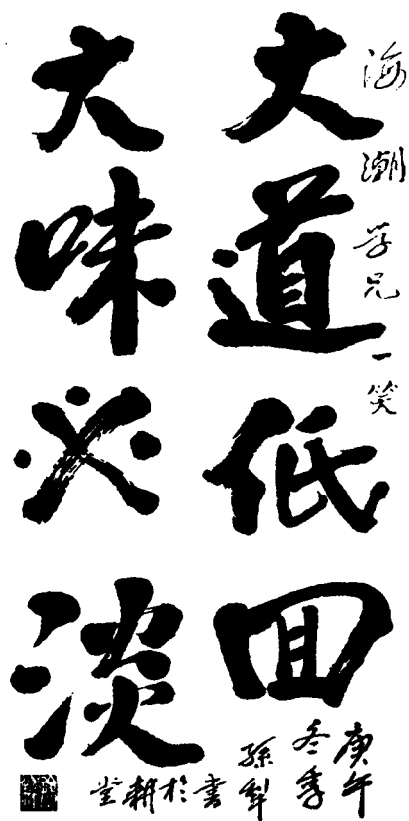 海潮学兄一笑
大道低回
大味必淡
庚午
冬季
孫犁
書於耕堂